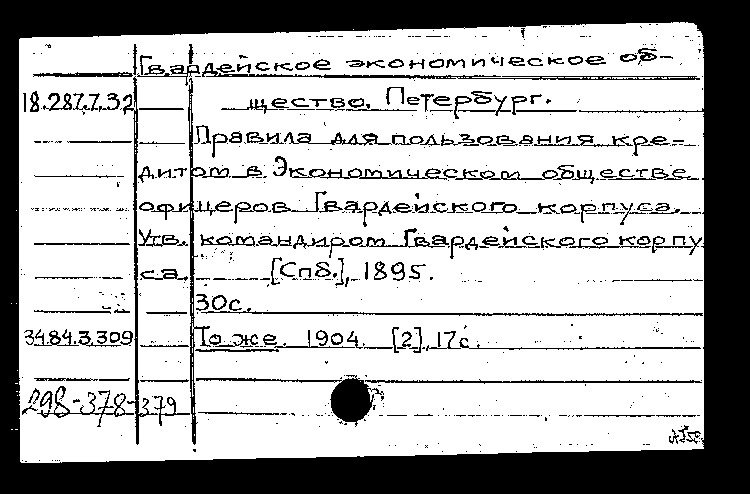 Гвардейское экономическое об-
18.287.7.32 щество. Петербург.
Правила для пользования кре-
дитом в Экономическом обществе
офицеров Гвардейского корпуса.
Утв. командиром Гвардейского корпу
са. [Спб.], 1895.
30с.
34.84.3.309 То же. 1904. [2], 17с.
298-378-379